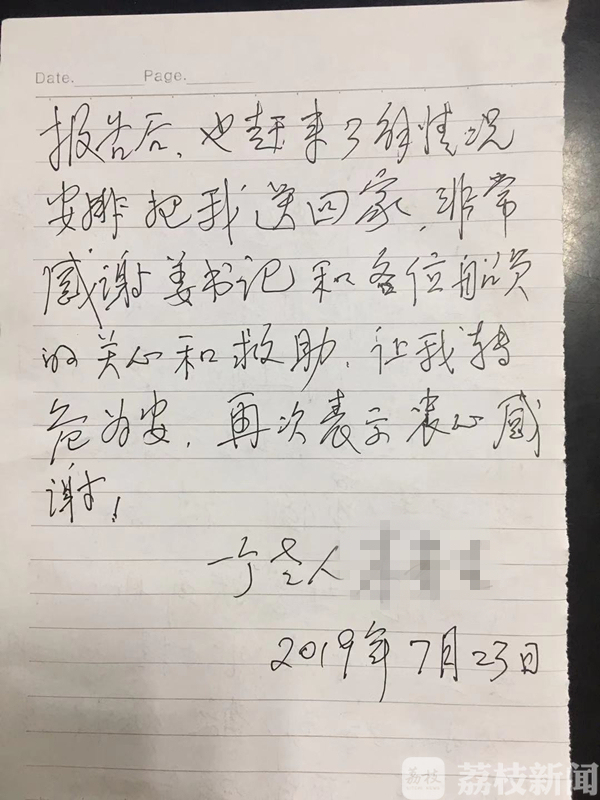 Date.
Page.
报告后，也赶来了解情况
安排把我送回家，非常
感谢姜书记和各位船员
的关心和救助，让我转
危为安，再次表示衷心感
谢！
一个老人
2019年7月23日
荔枝
荔枝新闻